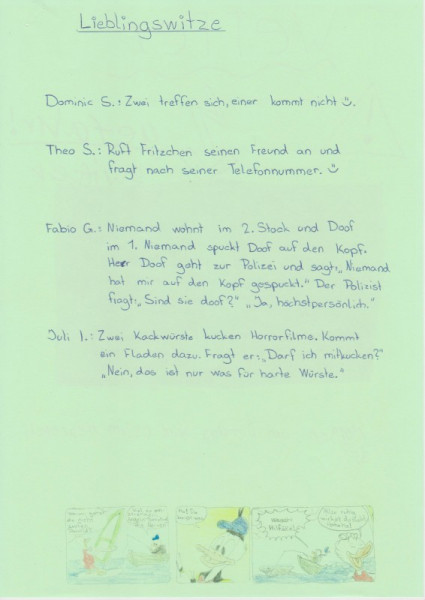 Lieblingswitze
Dominic S.: Zwei treffen sich, einer kommt nicht ☺.
Theo S.: Ruft Fritzchen seinen Freund an und
fragt nach seiner Telefonnummer. ☺
Fabio G.: Niemand wohnt im 2. Stock und Doof
im 1. Niemand spuckt Doof auf den Kopf.
Herr Doof geht zur Polizei und sagt: „Niemand
hat mir auf den Kopf gespuckt." Der Polizist
fragt: „Sind sie doof?" „Ja, höchstpersönlich."
Juli I.: Zwei Kackwürste kucken Horrorfilme. Kommt
ein Fladen dazu. Fragt er: „Darf ich mitkucken?"
„Nein, das ist nur was für harte Würste."